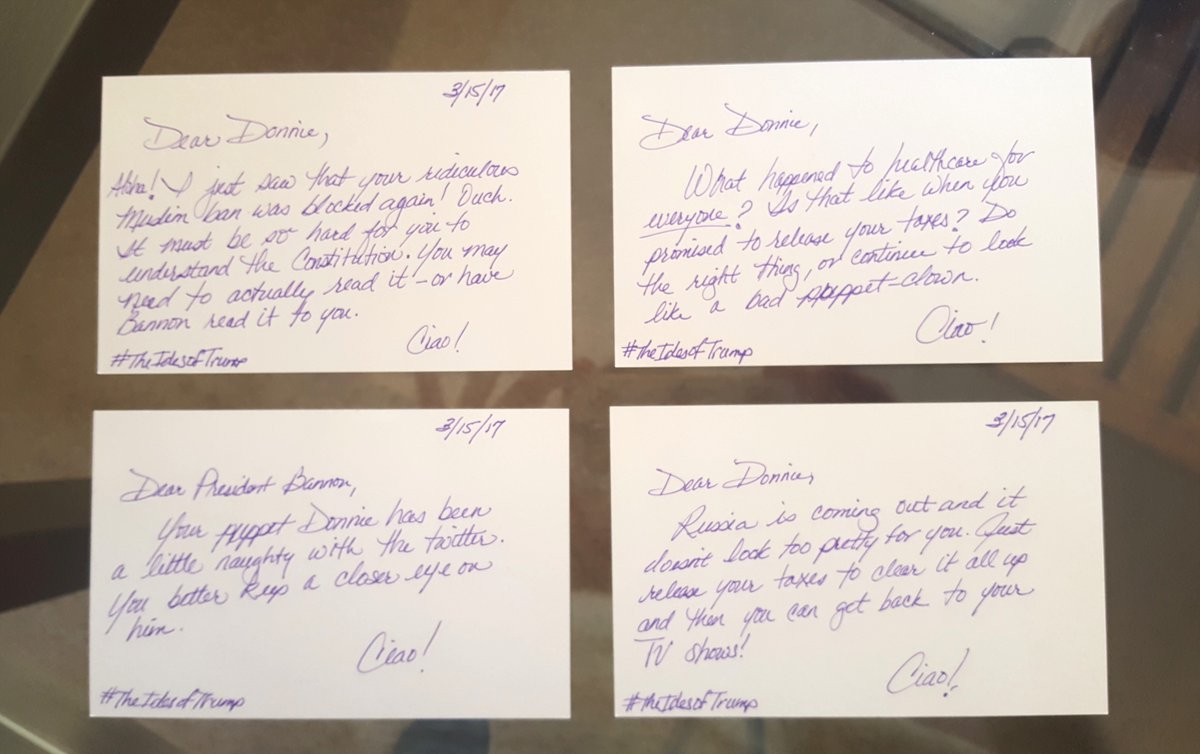 3/15/17
Dear Donnie,
Aloha! I just saw that your ridiculous
Muslim ban was blocked again! Ouch.
It must be so hard for you to
understand the Constitution. You may
need to actually read it - or have
Bannon read it to you.
Ciao!
#TheIdesofTrump
Dear Donnie,
What happened to healthcare for
everyone? Is that like when you
promised to release your taxes? Do
the right thing, or continue to look
like a bad puppet-clown.
Ciao!
#TheIdesofTrump
3/15/17
Dear President Bannon,
Your puppet Donnie has been
a little naughty with the twitter.
You better keep a closer eye on
him.
Ciao!
#TheIdesofTrump
3/15/17
Dear Donnie,
Russia is coming out and it
doesn't look too pretty for you. Just
release your taxes to clear it all up
and then you can get back to your
TV shows!
Ciao!
#TheIdesofTrump